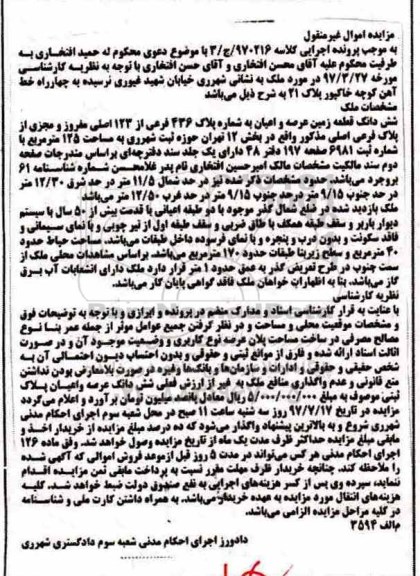 مزایده اموال غیرمنقول
به موجب پرونده اجرایی کلاسه ۹۷۰۲۱۶/ج/۳ با موضوع دعوی محکوم له حمید افتخاری به
طرفیت محکوم علیه آقای محسن افتخاری و آقای حسن افتخاری با توجه به نظریه کارشناسی
مورخه ۹۷/۳/۲۷ در مورد ملک به نشانی شهرری خیابان شهید غیوری نرسیده به چهارراه خط
آهن کوچه خاکپور پلاک ۲۱ به شرح ذیل می‌باشد
مشخصات ملک
شش دانگ قطعه زمین عرصه و اعیان به شماره پلاک ۴۳۶ فرعی از ۱۲۳ اصلی مفروز و مجزی از
پلاک فرعی اصلی مذکور واقع در بخش ۱۲ تهران حوزه ثبت شهرری به مساحت ۱۲۵ مترمربع با
شماره ثبت ۶۹۸۱ صفحه ۱۹۷ دفتر ۴۸ دارای یک جلد سند دفترچه‌ای براساس مندرجات صفحه
دوم سند مالکیت مشخصات مالک امیرحسین افتخاری نام پدر غلامحسن شماره شناسنامه ۶۱
بروجرد می‌باشد، حدود مشخصات ذکر شده نیز در حد شمال ۱۱/۵ متر در حد شرق ۱۲/۳۰ متر
در حد جنوب ۹/۱۵ متر در حد جنوب ۹/۱۵ متر در حد غرب ۱۲/۵۰ متر می‌باشد
ملک بازدید شده در ضلع شمال گذر موجود با دو طبقه اعیانی با قدمت بیش از ۵۰ سال با سیستم
دیوار باربر و سقف طبقه همکف با طاق ضربی و سقف طبقه اول از تیر چوبی و با نمای سیمانی و
فاقد سکونت و بدون درب و پنجره و با نمای فرسوده داخل طبقات می‌باشد. مساحت حیاط حدود
۴۰ مترمربع و سطح زیربنا طبقات حدود ۱۷۰ مترمربع می‌باشد. براساس مشاهدات محلی ملک از
سمت جنوب در طرح تعریض گذر به عمق حدود ۱ متر قرار دارد ملک دارای انشعابات آب برق
گاز می‌باشد. بنا به اظهارات خواهان ملک فاقد گواهی پایان کار می‌باشد.
نظریه کارشناسی
با عنایت به قرار کارشناسی اسناد و مدارک منضم در پرونده و ابرازی و با توجه به توضیحات فوق
و مشخصات موقعیت محلی و مساحت و در نظر گرفتن جمیع عوامل موثر از جمله عمر بنا نوع
مصالح مصرفی در ساخت مساحت پلان عرصه نوع کاربری و وضعیت موجود آن و در صورت
اثالت اسناد ارائه شده و فارق از موانع ثبتی و حقوقی و بدون احتساب دیون احتمالی آن به
شخص حقیقی و حقوقی و ادارات و سازمان‌ها و بانکها وغیره در صورت بلامعارض بودن نداشتن
منع قانونی و عدم واگذاری منافع ملک به غیر از ارزش فعلی شش دانگ عرصه واعیان پلاک
ثبتی موصوف به مبلغ ۵/۰۰۰/۰۰۰/۰۰۰ ریال معادل پانصد میلیون تومان برآورد و اعلام می‌گردد
مزایده در تاریخ ۹۷/۷/۱۷ روز سه شنبه ساعت ۱۱ صبح در محل شعبه سوم اجرای احکام مدنی
شهرری شروع و به بالاترین پیشنهاد واگذار می‌شود که ده درصد مبلغ مزایده از خریدار اخذ و
مابقی مبلغ مزایده حداکثر ظرف مدت یک ماه از تاریخ مزایده وصول خواهد شد. وفق ماده ۱۲۶
اجرای احکام مدنی هر کس می‌تواند در مدت ۵ روز قبل ازموعد فروش اموالی که آگهی شده
را ملاحظه کند. چنانچه خریدار ظرف مهلت مقرر نسبت به پرداخت مابقی ثمن مزایده اقدام
ننماید، سپرده وی پس از کسر هزینه‌های اجرایی به نفع صندوق دولت ضبط خواهد شد. کلیه
هزینه‌های انتقال مورد مزایده به عهده خریدار می‌باشد. به همراه داشتن کارت ملی و شناسنامه
در کلیه مراحل مزایده الزامی می‌باشد.
م‌الف ۳۵۹۴
دادورز اجرای احکام مدنی شعبه سوم دادگستری شهرری